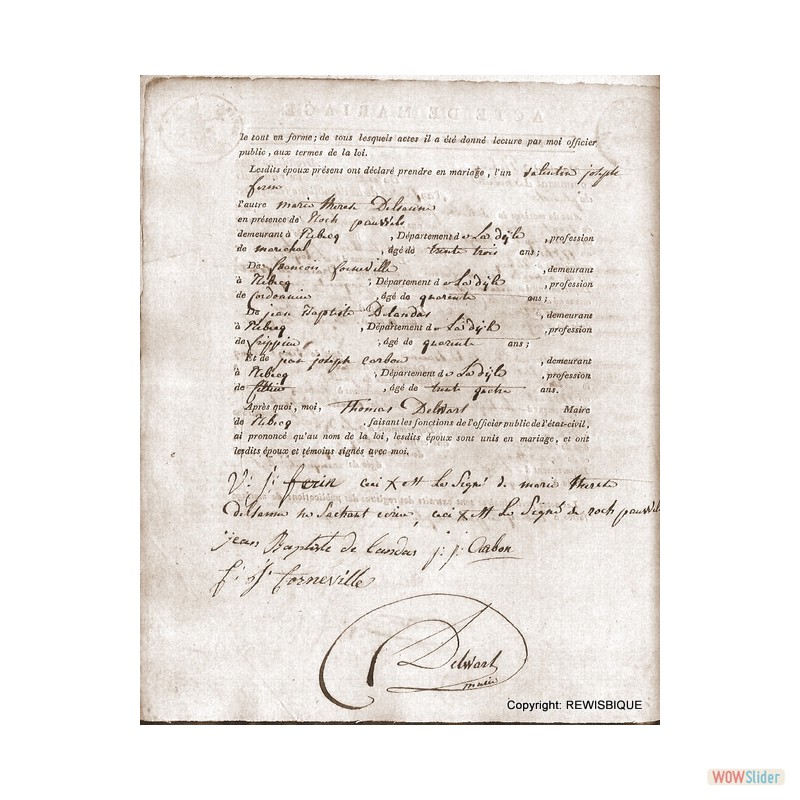 le tout en forme; de tous lesquels actes il a été donné lecture par moi officier
public, aux termes de la loi.
Lesdits époux présens ont déclaré prendre en mariage, l'un valentin joseph
ferin
l'autre marie therese Delsanne
en présence de Roch pauwels
demeurant à Rebecq , Département de La dÿle , profession
de marechal , âgé de trente trois ans;
De francois forneville , demeurant
à Rebecq , Département de La dÿle , profession
de cordonnier , âgé de quarente ans;
De jean Baptiste Delandas , demeurant
à Rebecq , Département de La dÿle , profession
de frippier , âgé de quarente ans;
Et de jean joseph carbon , demeurant
à Rebecq , Département de La dÿle , profession
de , âgé de trente quatre ans.
Après quoi, moi, Thomas Delwart Maire
de Rebecq , faisant les fonctions de l'officier public de l'état-civil,
ai prononcé qu'au nom de la loi, lesdits époux sont unis en mariage, et ont
lesdits époux et témoins signés avec moi.
V: j: ferin ceci X est Le Signé de marie therese
Delsanne ne Sachant ecrire, ceci X est Le Signé de roch pauwels
jean Baptiste de Landas j: j: Carbon
f: J: forneville
Delwart
maire
Copyright: REWISBIQUE
WOWSlider